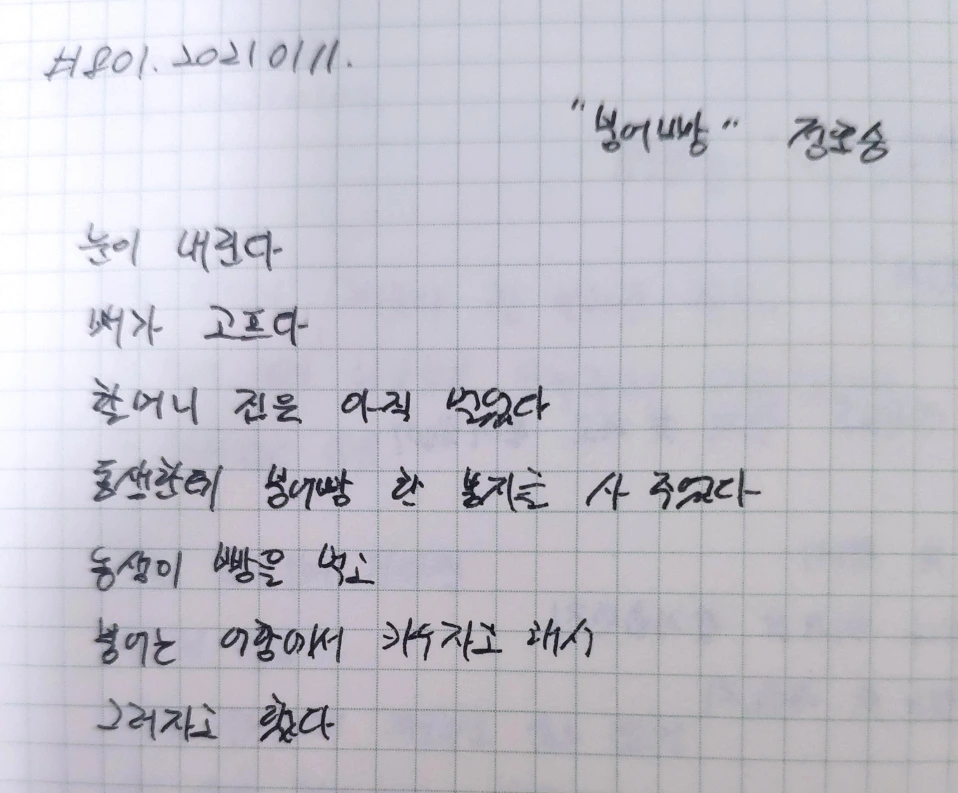 #801. 20210111.
"붕어빵" 정호승
눈이 내린다
배가 고프다
할머니 집은 아직 멀었다
동생한테 붕어빵 한 봉지를 사 주었다
동생이 빵을 먹고
붕어는 어항에서 키우자고 해서
그러자고 했다